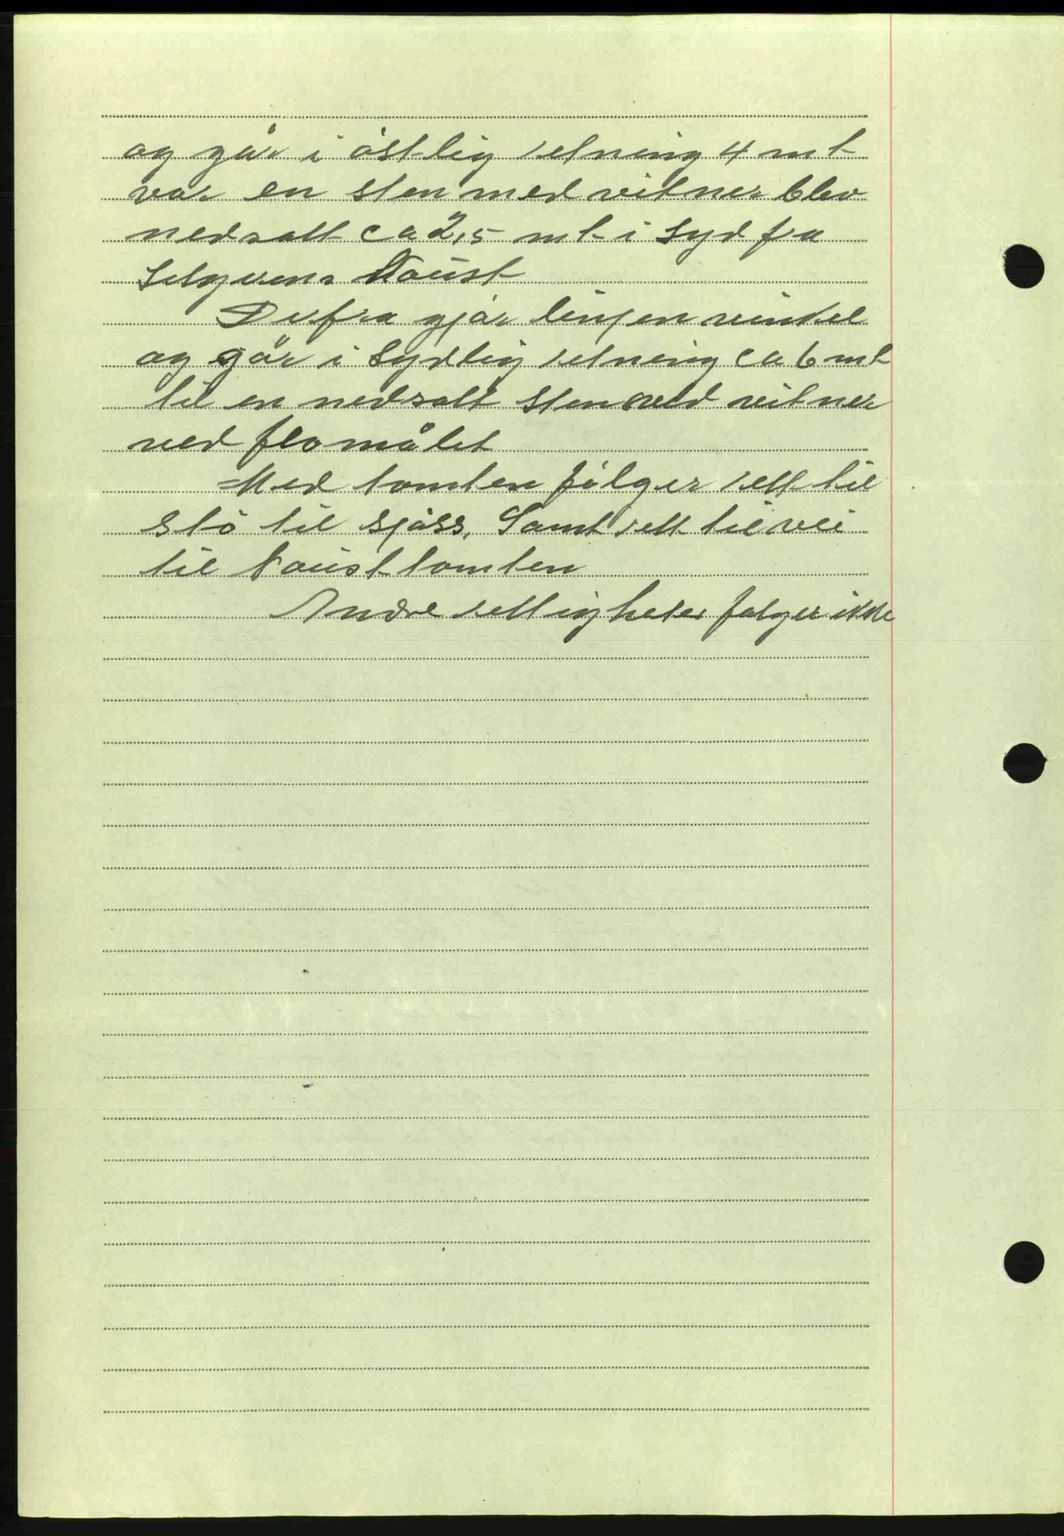 og går i östlig retning 4 mt
var en sten med vitner blev
nedsatt ca 2,5 mt i Syd fra
Selgerens Naust
Derfra gjör linjen vinkel
og går i Sydlig retning ca 6 mt
til en nedsatt sten med vitner
ved flomålet
Med tomten fölger rett til
stö til sjöss, Samt rett til vei
til Nausttomten
Andre rettigheter følger ikke